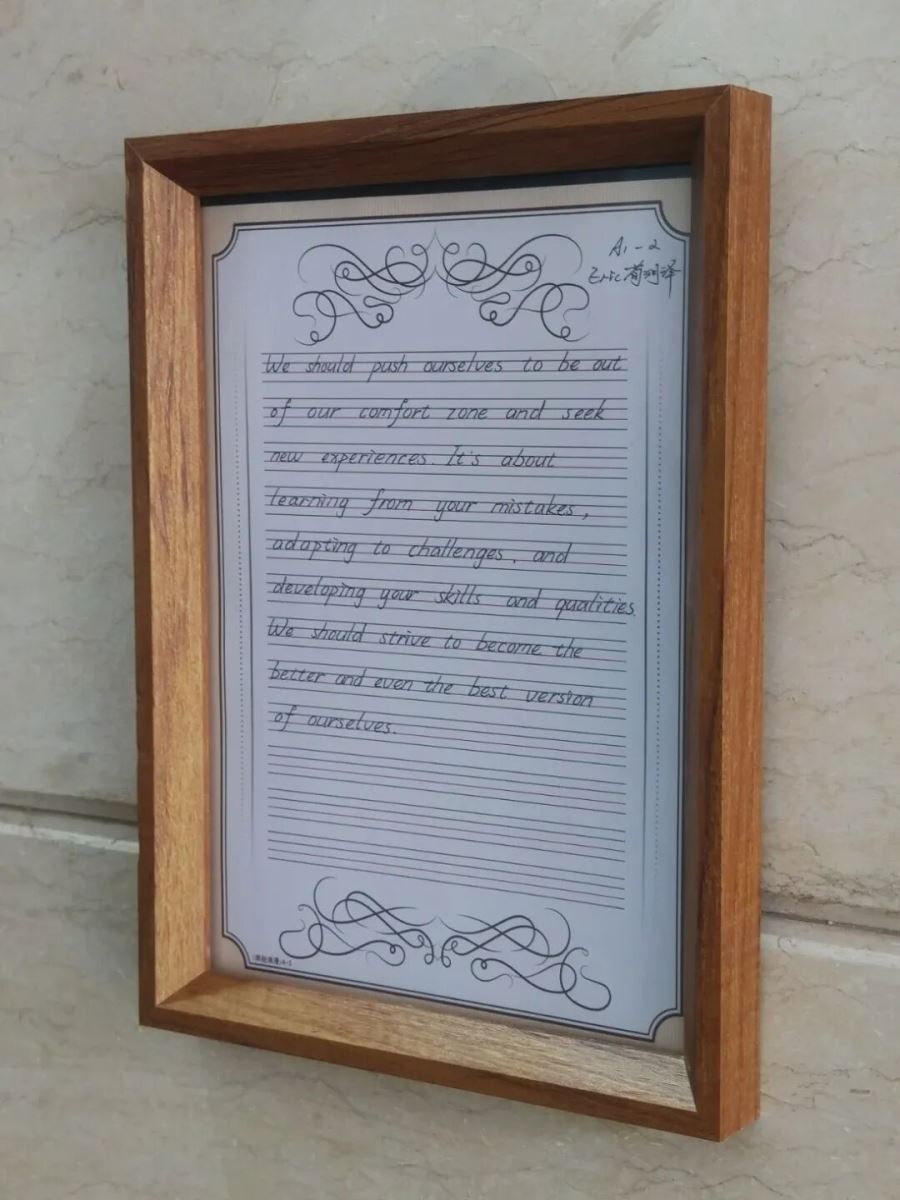 A1-2
Eric
We should push ourselves to be out
of our comfort zone and seek
new experiences. It's about
learning from your mistakes,
adapting to challenges, and
developing your skills and qualities.
We should strive to become the
better and even the best version
of ourselves.